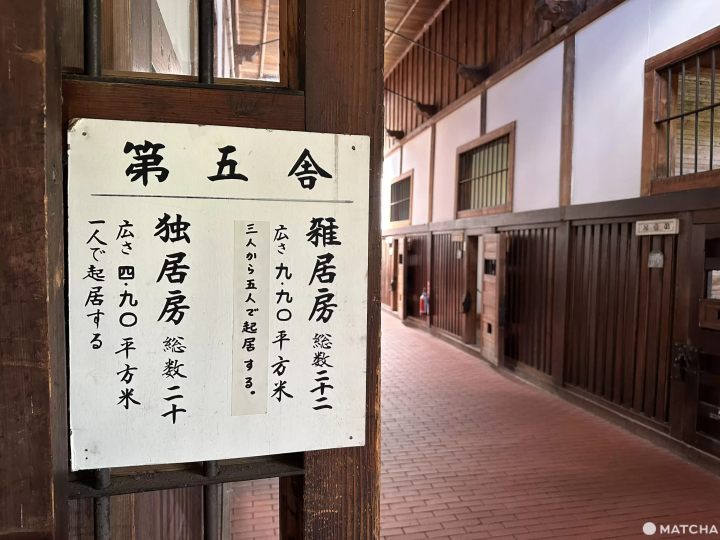 第五舎
雑居房 総数二十二
広さ 九・九〇平方米
三人から五人で起居する。
独居房 総数二十
広さ 四・九〇平方米
一人で起居する
MATCHA